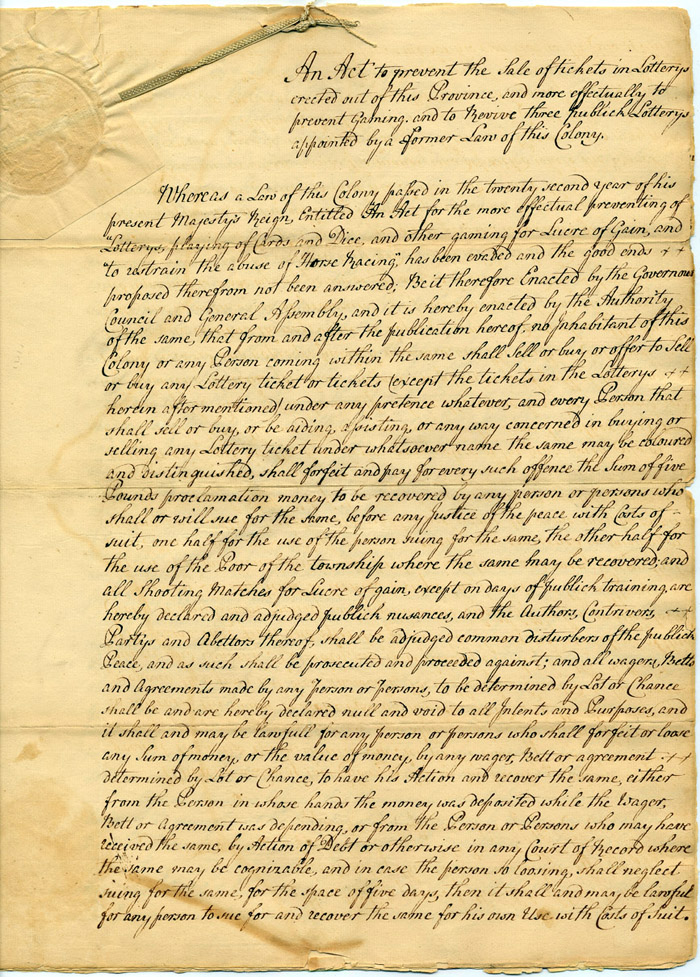 An Act to prevent the Sale of tickets in Lotterys
erected out of this Province, and more effectually to
prevent Gaming, and to Revive three publick Lotterys
appointed by a former Law of this Colony.
Whereas a Law of this Colony passed in the twenty second year of his
present Majesty's Reign, Entitled An Act for the more effectual preventing of
"Lotterys, playing of Cards and Dice, and other gaming for Lucre of Gain, and
"to restrain the abuse of Horse Racing," has been evaded and the good ends
proposed therefrom not been answered; Be it therefore Enacted by the Governour
Council and General Assembly, and it is hereby enacted by the Authority
of the same, that from and after the publication hereof, no Inhabitant of this
Colony or any Person coming within the same shall Sell or buy or offer to Sell
or buy any Lottery ticket or tickets (except the tickets in the Lotterys
herein after mentioned) under any pretence whatever, and every Person that
shall sell or buy, or be aiding, assisting, or any way concerned in buying or
selling any Lottery ticket under whatsoever name the same may be coloured
and distinguished, shall forfeit and pay for every such offence the Sum of five
Pounds proclamation money to be recovered by any person or persons who
shall or will sue for the same, before any Justice of the peace with Costs of
suit, one half for the use of the person suing for the same, the other half for
the use of the Poor of the township where the same may be recovered, and
all Shooting Matches for Lucre of gain, except on days of publick training, are
hereby declared and adjudged publick nusances, and the Authors, Contrivers,
Partys and Abettors thereof, shall be adjudged common disturbers of the publick
Peace, and as such shall be prosecuted and proceeded against; and all wagers, Betts
and Agreements made by any Person or Persons, to be determined by Lot or Chance
shall be and are hereby declared null and void to all Intents and Purposes, and
it shall and may be lawfull for any person or persons who shall forfeit or loose
any Sum of money, or the value of money, by any wager, Bett or agreement
determined by Lot or Chance, to have his Action and recover the same, either
from the Person in whose hands the money was deposited while the Wager,
Bett or Agreement was depending, or from the Person or Persons who may have
received the same, by Action of Debt or otherwise in any Court of Record where
the same may be cognizable, and in case the person so loosing, shall neglect
suing for the same, for the space of five days, then it shall and may be lawful
for any person to sue for and recover the same for his own Use with Costs of Suit.